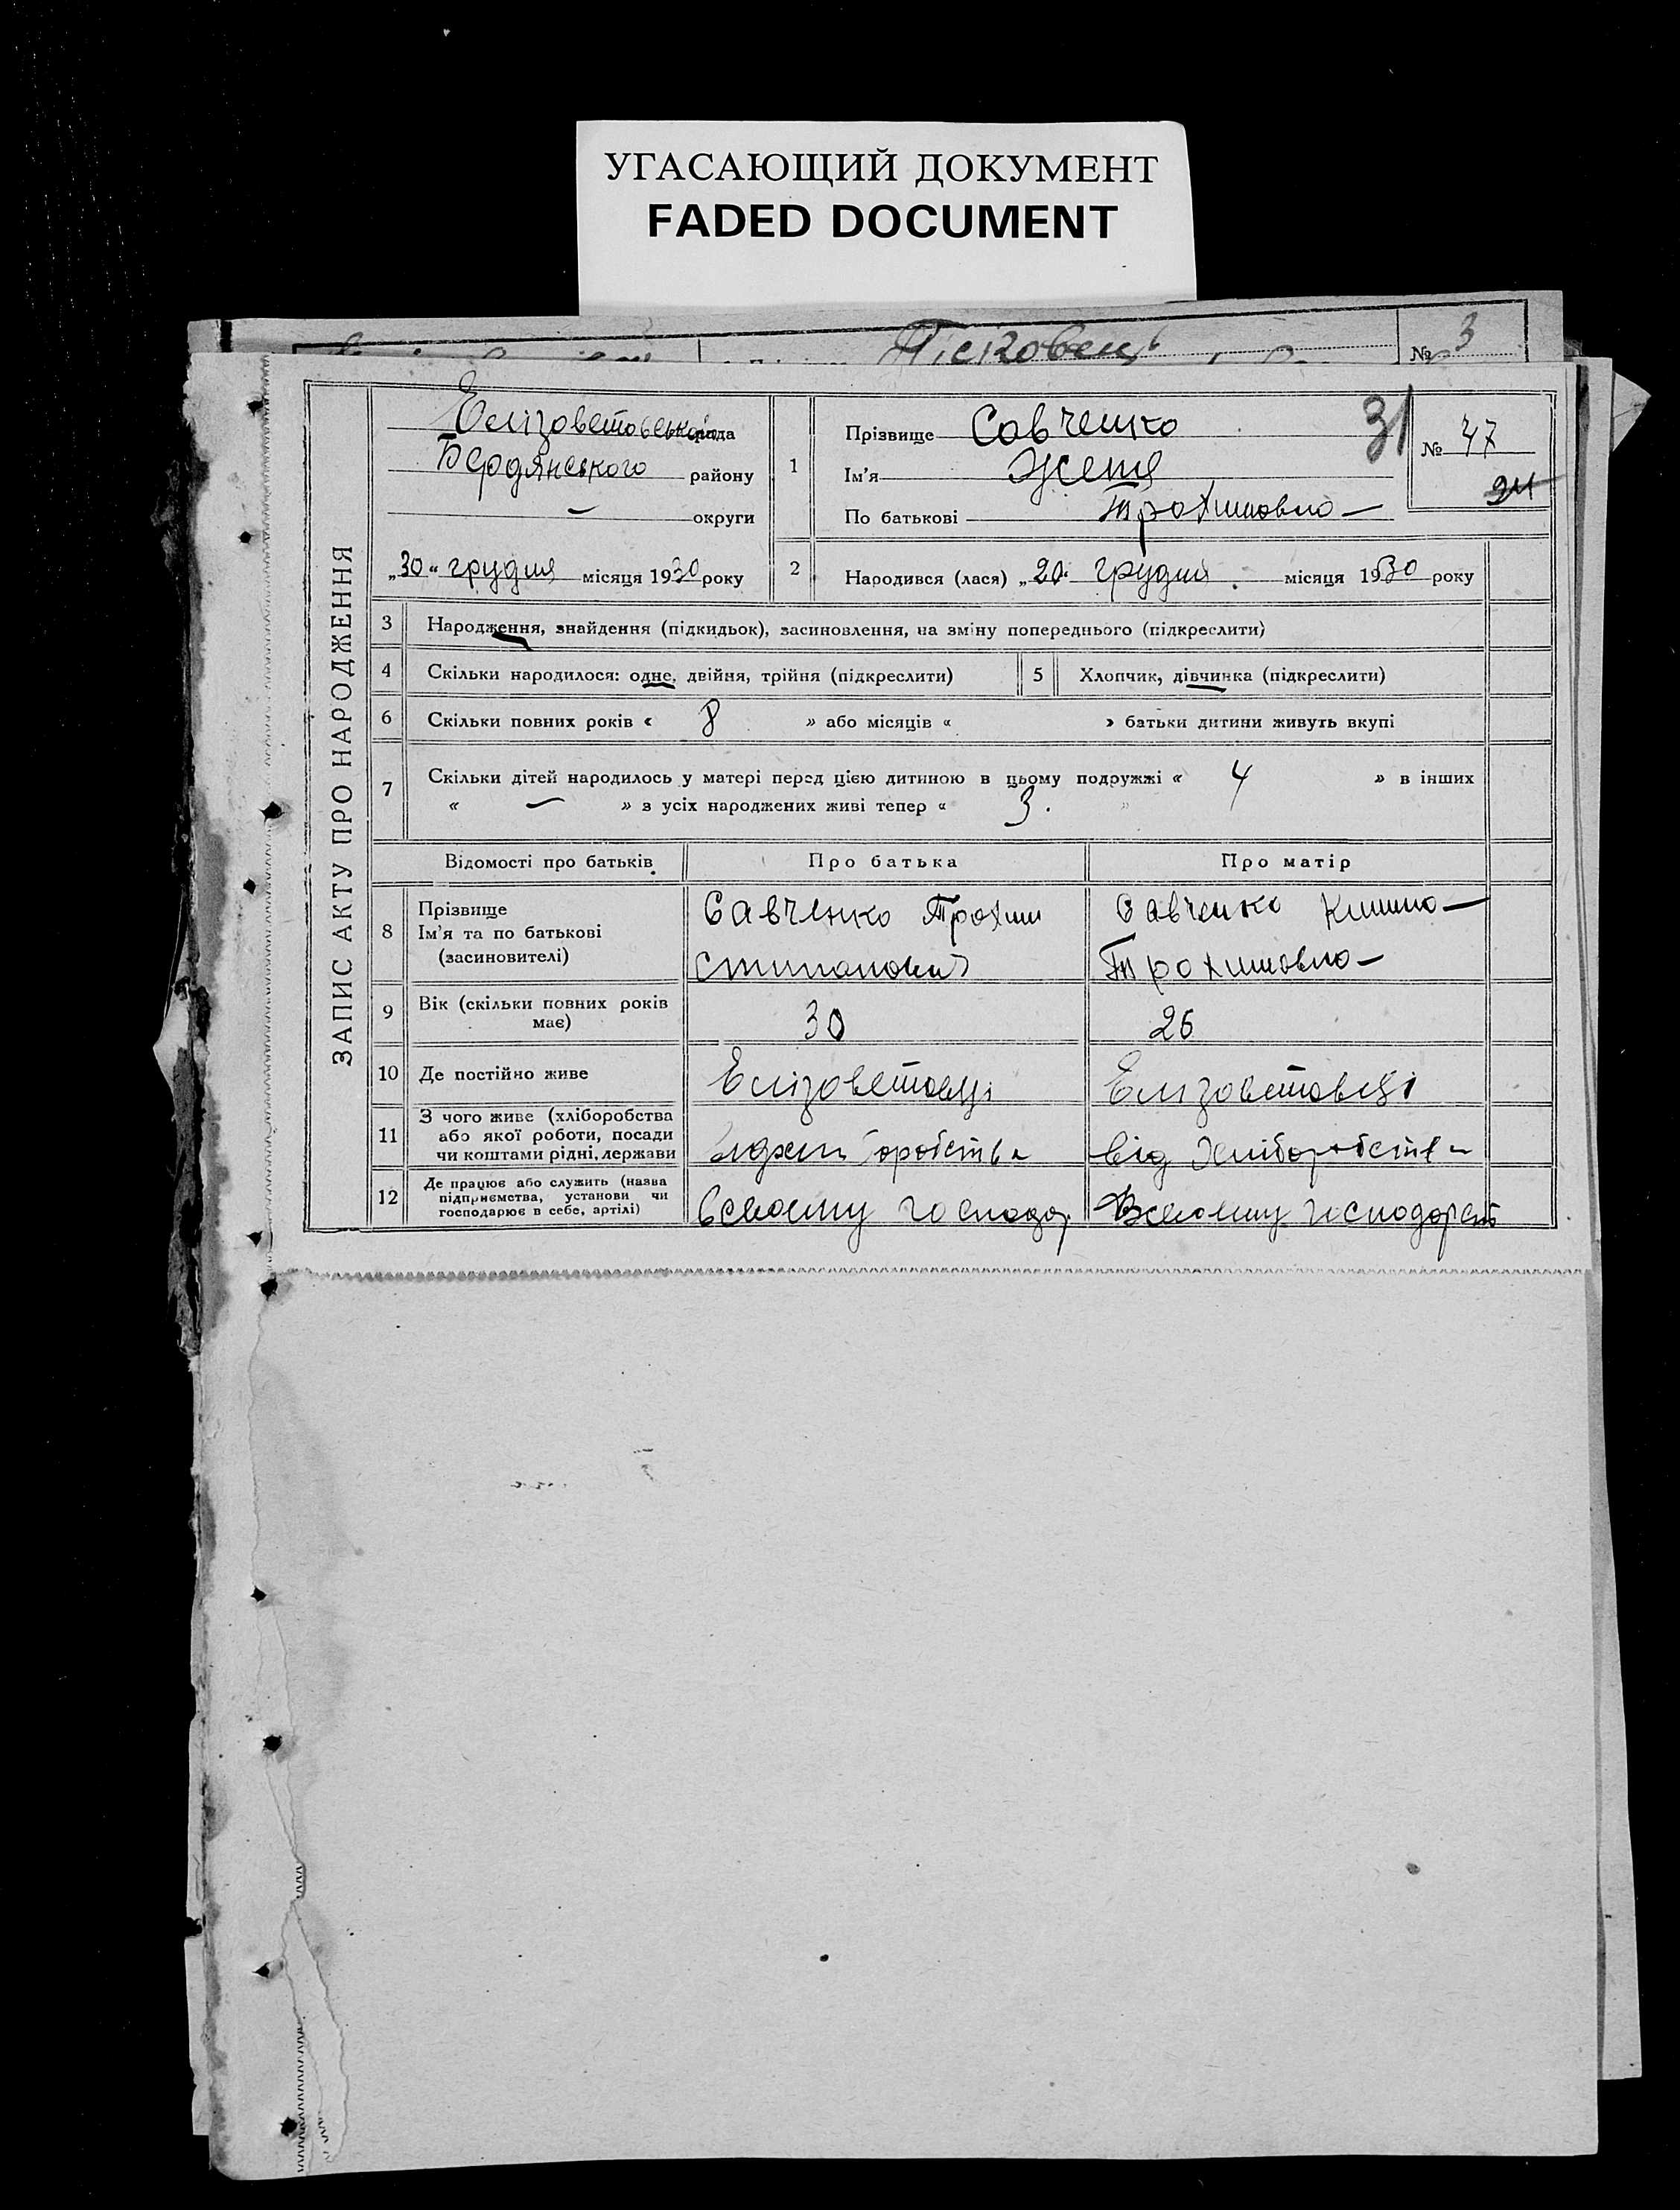 УГАСАЮЩИЙ ДОКУМЕНТ
FADED DOCUMENT
Пісковець № 3
ЗАПИС АКТУ ПРО НАРОДЖЕННЯ
Єлізоветовська рада
Бердянського району
— округи
„30“ грудня місяця 1930 року
1
Прізвище Савченко 31
Ім'я Женя
По батькові Трохимовна —
№ 47
2
Народився (лася) „20“ грудня місяця 1930 року
3 Народження, знайдення (підкидьок), засиновлення, на зміну попереднього (підкреслити)
4 Скільки народилося: одне, двійня, трійня (підкреслити) 5 Хлопчик, дівчинка (підкреслити)
6 Скільки повних років « 8 » або місяців « » батьки дитини живуть вкупі
7 Скільки дітей народилось у матері перед цією дитиною в цьому подружжі « 4 » в інших
« — » з усіх народжених живі тепер « 3. »
Відомості про батьків Про батька Про матір
8 Прізвище
Ім'я та по батькові
(засиновителі)
Савченко Трохим
Савченко
Трохимовна —
9 Вік (скільки повних років
має)
30 26
10 Де постійно живе Елізоветовці Елизоветовці
11 З чого живе (хліборобства
або якої роботи, посади
чи коштами рідні, держави
від хліборобства
12 Де працює або служить (назва
підприємства, установи чи
господарює в себе, артілі)
Всвоєму господар. Всвоєму господарст